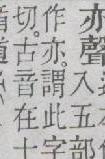 亦聲入五部
作亦。謂此字
切。古音在十